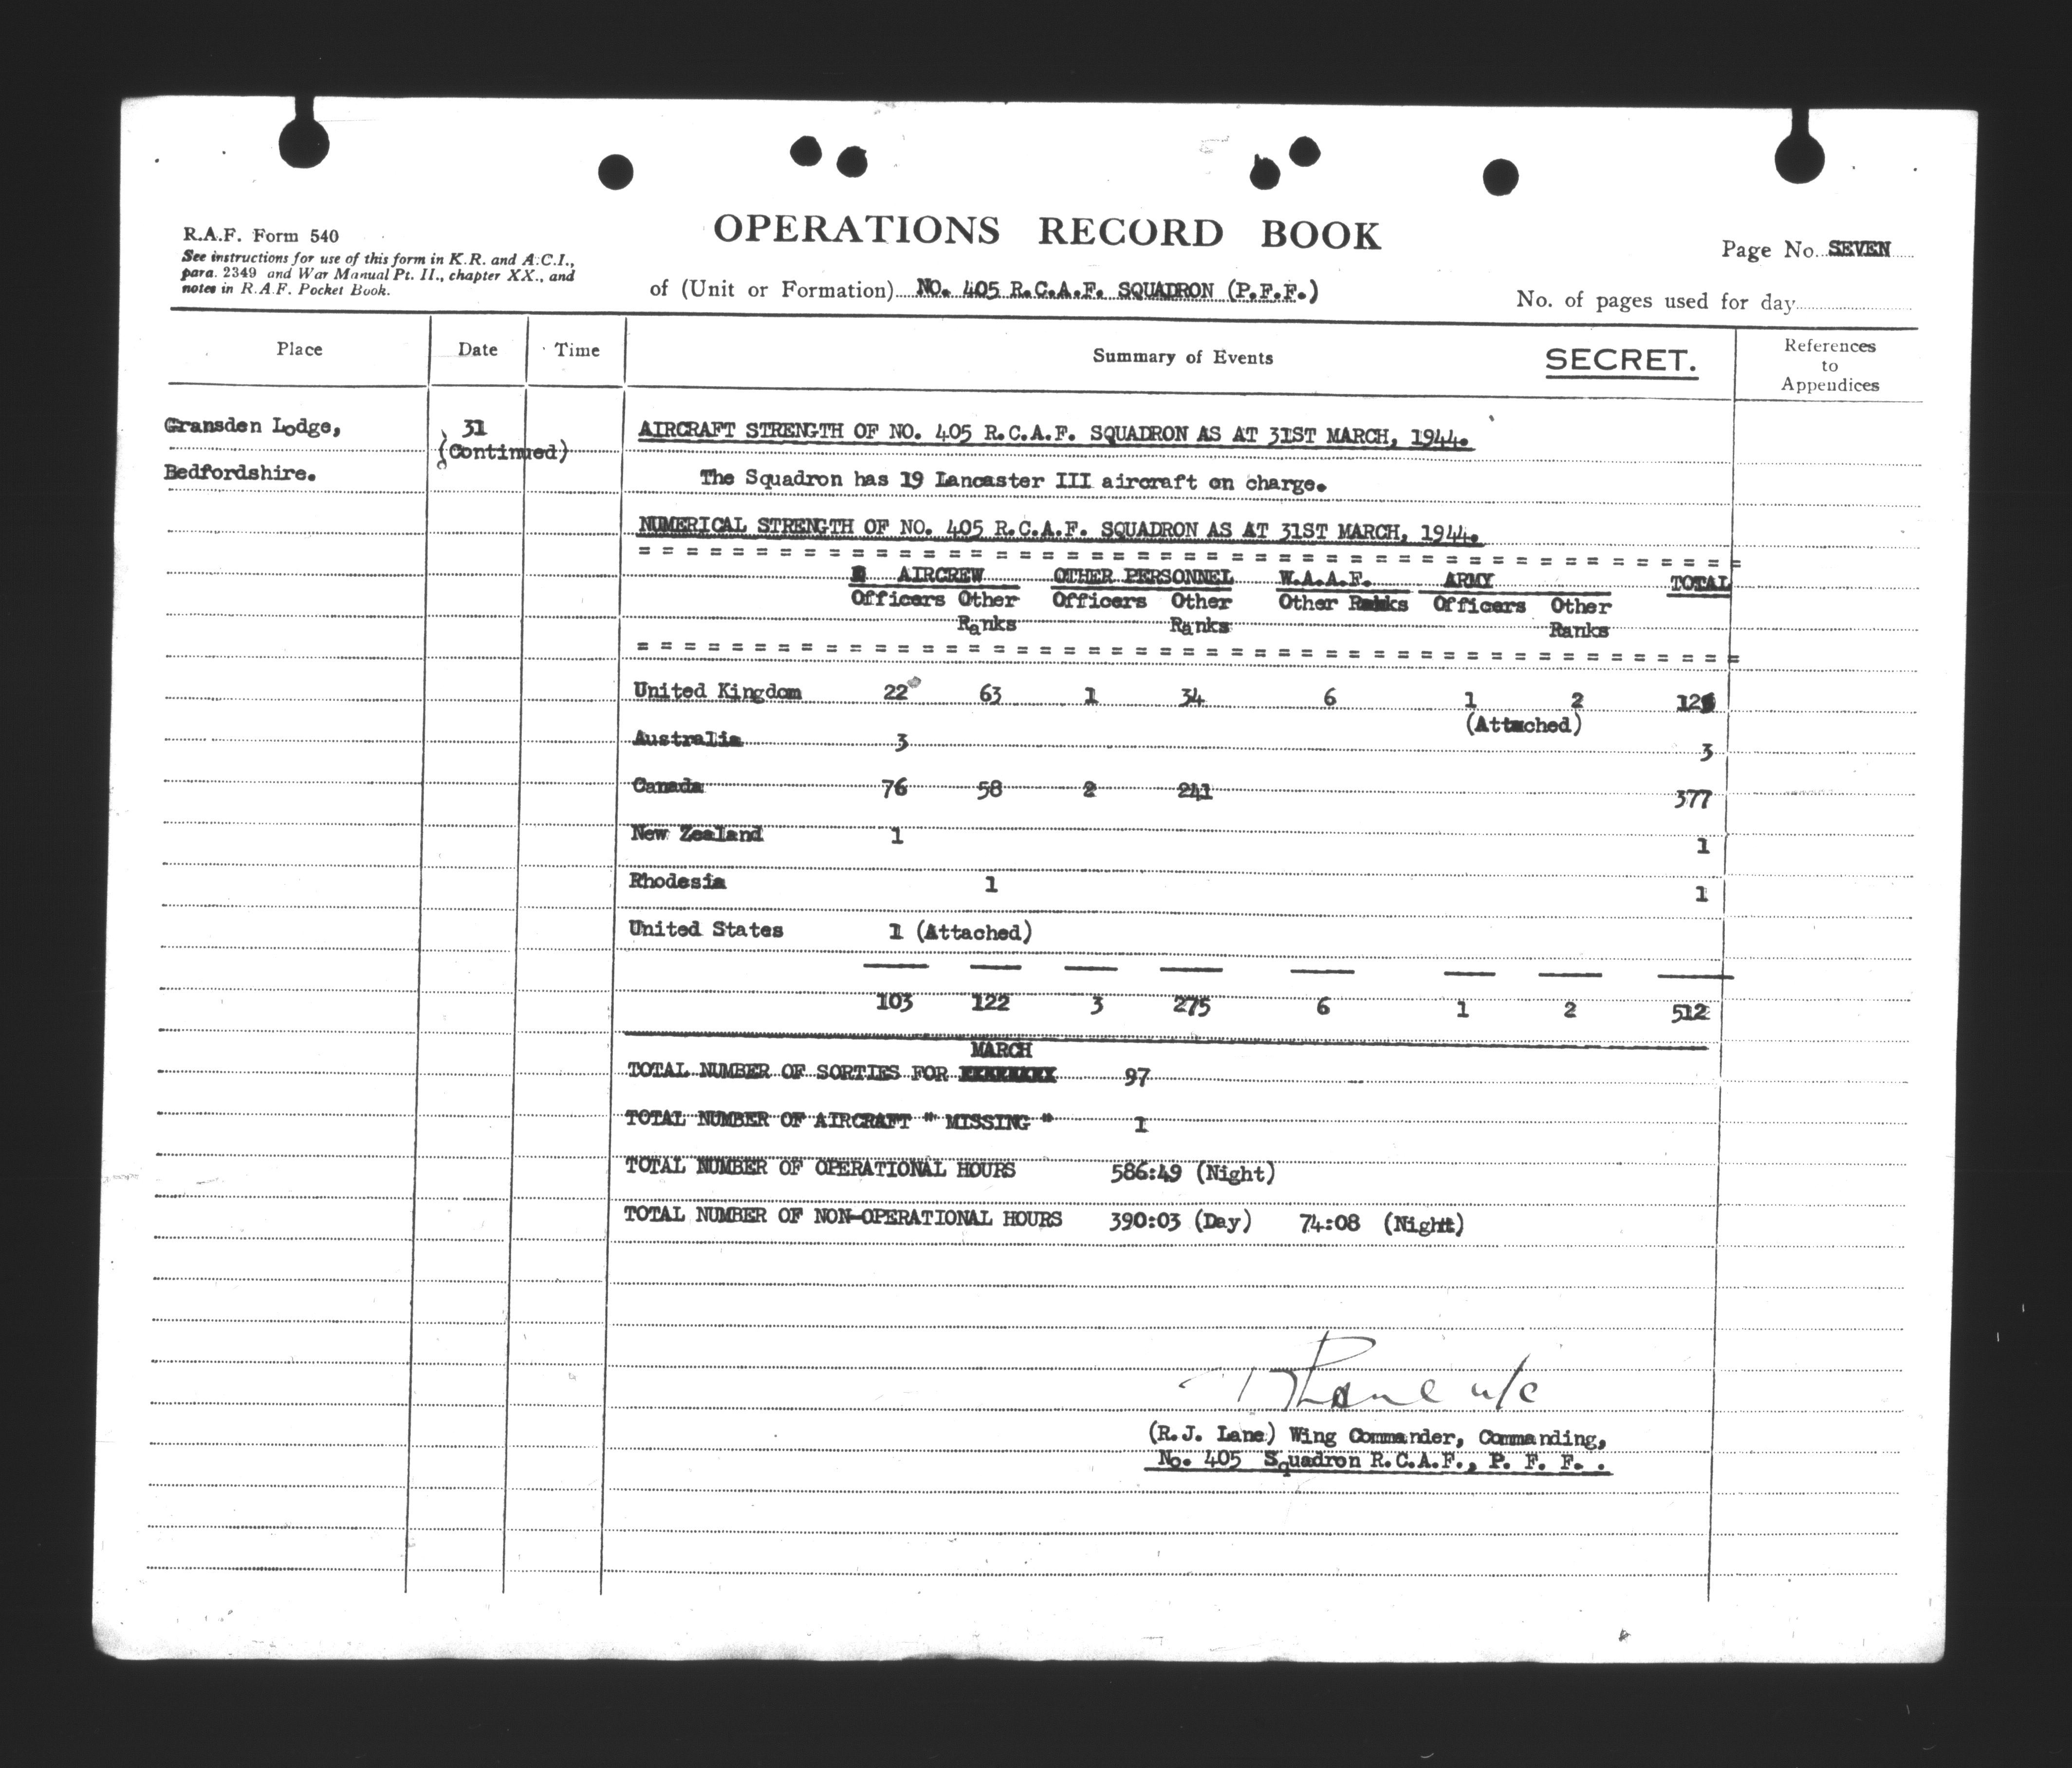 OPERATIONS RECORD BOOK
R.A.F. Form 540
See instructions for use of this form in K.R. and A.C.I.,
para. 2349 and War Manual Pt. II., chapter XX., and
notes in R.A.F. Pocket Book.
Page No. SEVEN
of (Unit or Formation) NO. 405 R.C.A.F. SQUADRON (P.F.F.)
No. of pages used for day
Place Date Time Summary of Events SECRET. References to Appendices
Gransden Lodge, 31 AIRCRAFT STRENGTH OF NO. 405 R.C.A.F. SQUADRON AS AT 31ST MARCH, 1944.
(Continued)
Bedfordshire. The Squadron has 19 Lancaster III aircraft on charge.
NUMERICAL STRENGTH OF NO. 405 R.C.A.F. SQUADRON AS AT 31ST MARCH, 1944.
= = = = = = = = = = = = = = = = = = = = = = = = = = = = = = = = = = = = = = = = = = = = = = =
AIRCREW OTHER PERSONNEL W.A.A.F. ARMY TOTAL
Officers Other Officers Other Other Ranks Officers Other
Ranks Ranks Ranks
= = = = = = = = = = = = = = = = = = = = = = = = = = = = = = = = = = = = = = = = = = = = = = =
United Kingdom 22 63 1 34 6 1 2
(Attached)
Australia 3 3
Canada 76 58 2 241 377
New Zealand 1 1
Rhodesia 1 1
United States 1 (Attached)
103 122 3 275 6 1 2 512
MARCH
TOTAL NUMBER OF SORTIES FOR 97
TOTAL NUMBER OF AIRCRAFT " MISSING " 1
TOTAL NUMBER OF OPERATIONAL HOURS 586:49 (Night)
TOTAL NUMBER OF NON-OPERATIONAL HOURS 390:03 (Day) 74:08 (Night)
RJLane w/c
(R.J. Lane) Wing Commander, Commanding,
No. 405 Squadron R.C.A.F., P. F. F. .